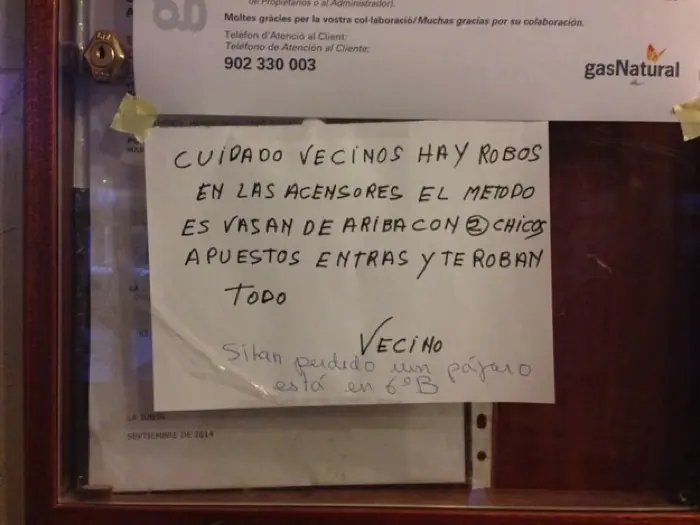 de Propietarios o al Administrador).
Moltes gràcies per la vostra col·laboració/Muchas gracias por su colaboración.
Telèfon d'Atenció al Client:
Teléfono de Atención al Cliente:
902 330 003
gasNatural
CUIDADO VECINOS HAY ROBOS
EN LAS ACENSORES EL METODO
ES VASAN DE ARIBA CON 2 CHICOS
APUESTOS ENTRAS Y TE ROBAN
TODO
VECINO
Sitan perdido um pájaro
está en 6º B
LA JUNTA
SEPTIEMBRE DE 2014